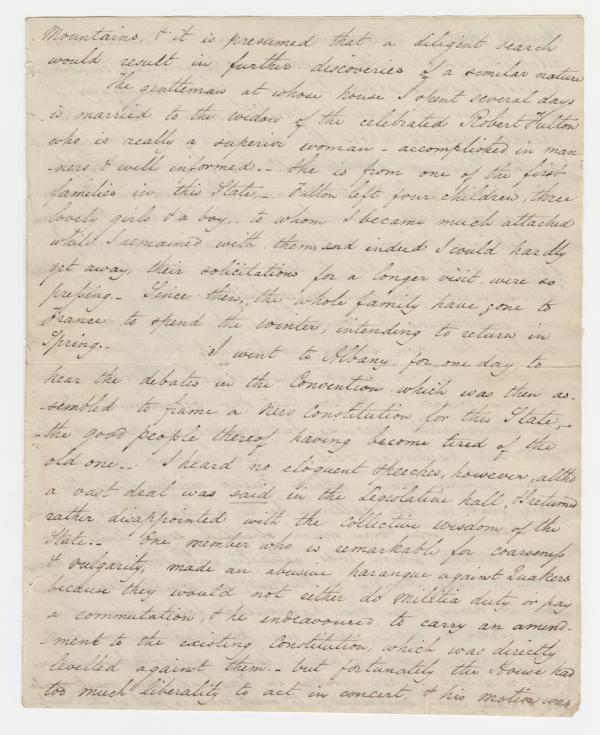 Mountains, & it is presumed that a diligent search
would result in further discoveries of a similar nature
The gentleman at whose house I spent several days
is married to the widow of the celebrated Robert Fulton
who is really a superior woman - accomplished in man-
-ners & well informed.- She is from one of the first
families in this State,- Fulton left four children, three
lovely girls & a boy,- to whom I became much attached
while I remained with them, and indeed I could hardly
get away, their solicitations for a longer visit, were so
pressing.- Since then, the whole family have gone to
France to spend the winter, intending to return in
Spring.- I went to Albany, for one day, to
hear the debates in the Convention which was then as-
-sembled to frame a New Constitution for this State,-
-the good people thereof having become tired of the
old one.- I heard no eloquent Speeches, however, altho
a vast deal was said in the Legislative hall, & I returned
rather disappointed with the collective wisdom of the
State.- One member who is remarkable for coarseness
& vulgarity, made an abusive harangue against Quakers
because they would not either do Militia duty or pay
a commutation, & he endeavoured to carry an amend-
-ment to the existing Constitution, which was directly
levelled against them.- but fortunately the House had
too much liberality to act in concert, & his motion was